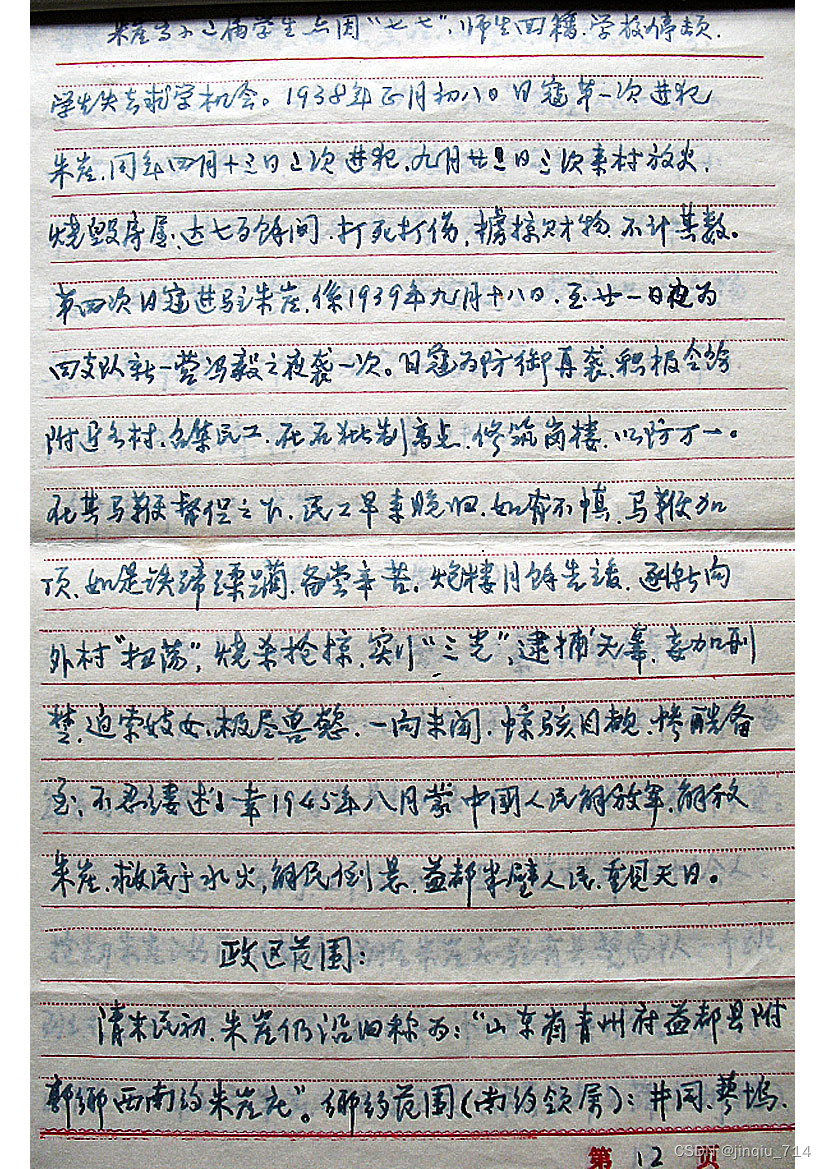 朱崖高小二届学生点因“七七”,师生回籍.学校停顿.
学生失去求学机会。1938年正月初八日日寇第一次进犯
朱崖.同年四月十三日二次进犯.九月廿日三次来村放火.
烧毁房屋.达七百余间.打死打伤,掳掠财物.不计其数。
第四次日寇进驻朱崖.係1939年九月十八日.至廿一日夜为
四支队新一营冯毅之夜袭一次。日寇为防御再袭.积极令饬
附近各村.召集民工.在石制高点.修筑岗楼.以防万一。
在其马鞭督促之下.民工早来晚归.如有不慎.马鞭加
顶.如是铁蹄蹂躏.备尝辛苦。炮楼月馀告竣.逐渐向
外村“扫荡”,烧杀抢掠.实行“三光”,逮捕无辜.妄加刑
楚.迫索妓女.极尽兽慾.一向未闻.惊骇目睹.惨酷备
至.不忍缕述.幸1945年八月蒙中國人民解放军.解放
朱崖.救民于水火,解民倒悬.益都半壁人民.重见天日。
政区范围:
清末民初.朱崖仍沿旧称为:“山东省青州府益都县附
郭乡西南约朱崖庄”。乡约范围(南约领属):井周.蓼坞.
第12页
CSDN @jinqiu_714